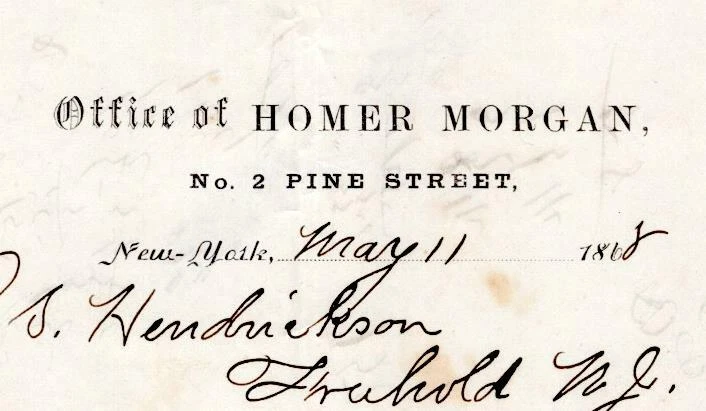 Office of HOMER MORGAN,
No. 2 PINE STREET,
New-York, May 11 1868
S. Hendrickson
Freehold N.J.